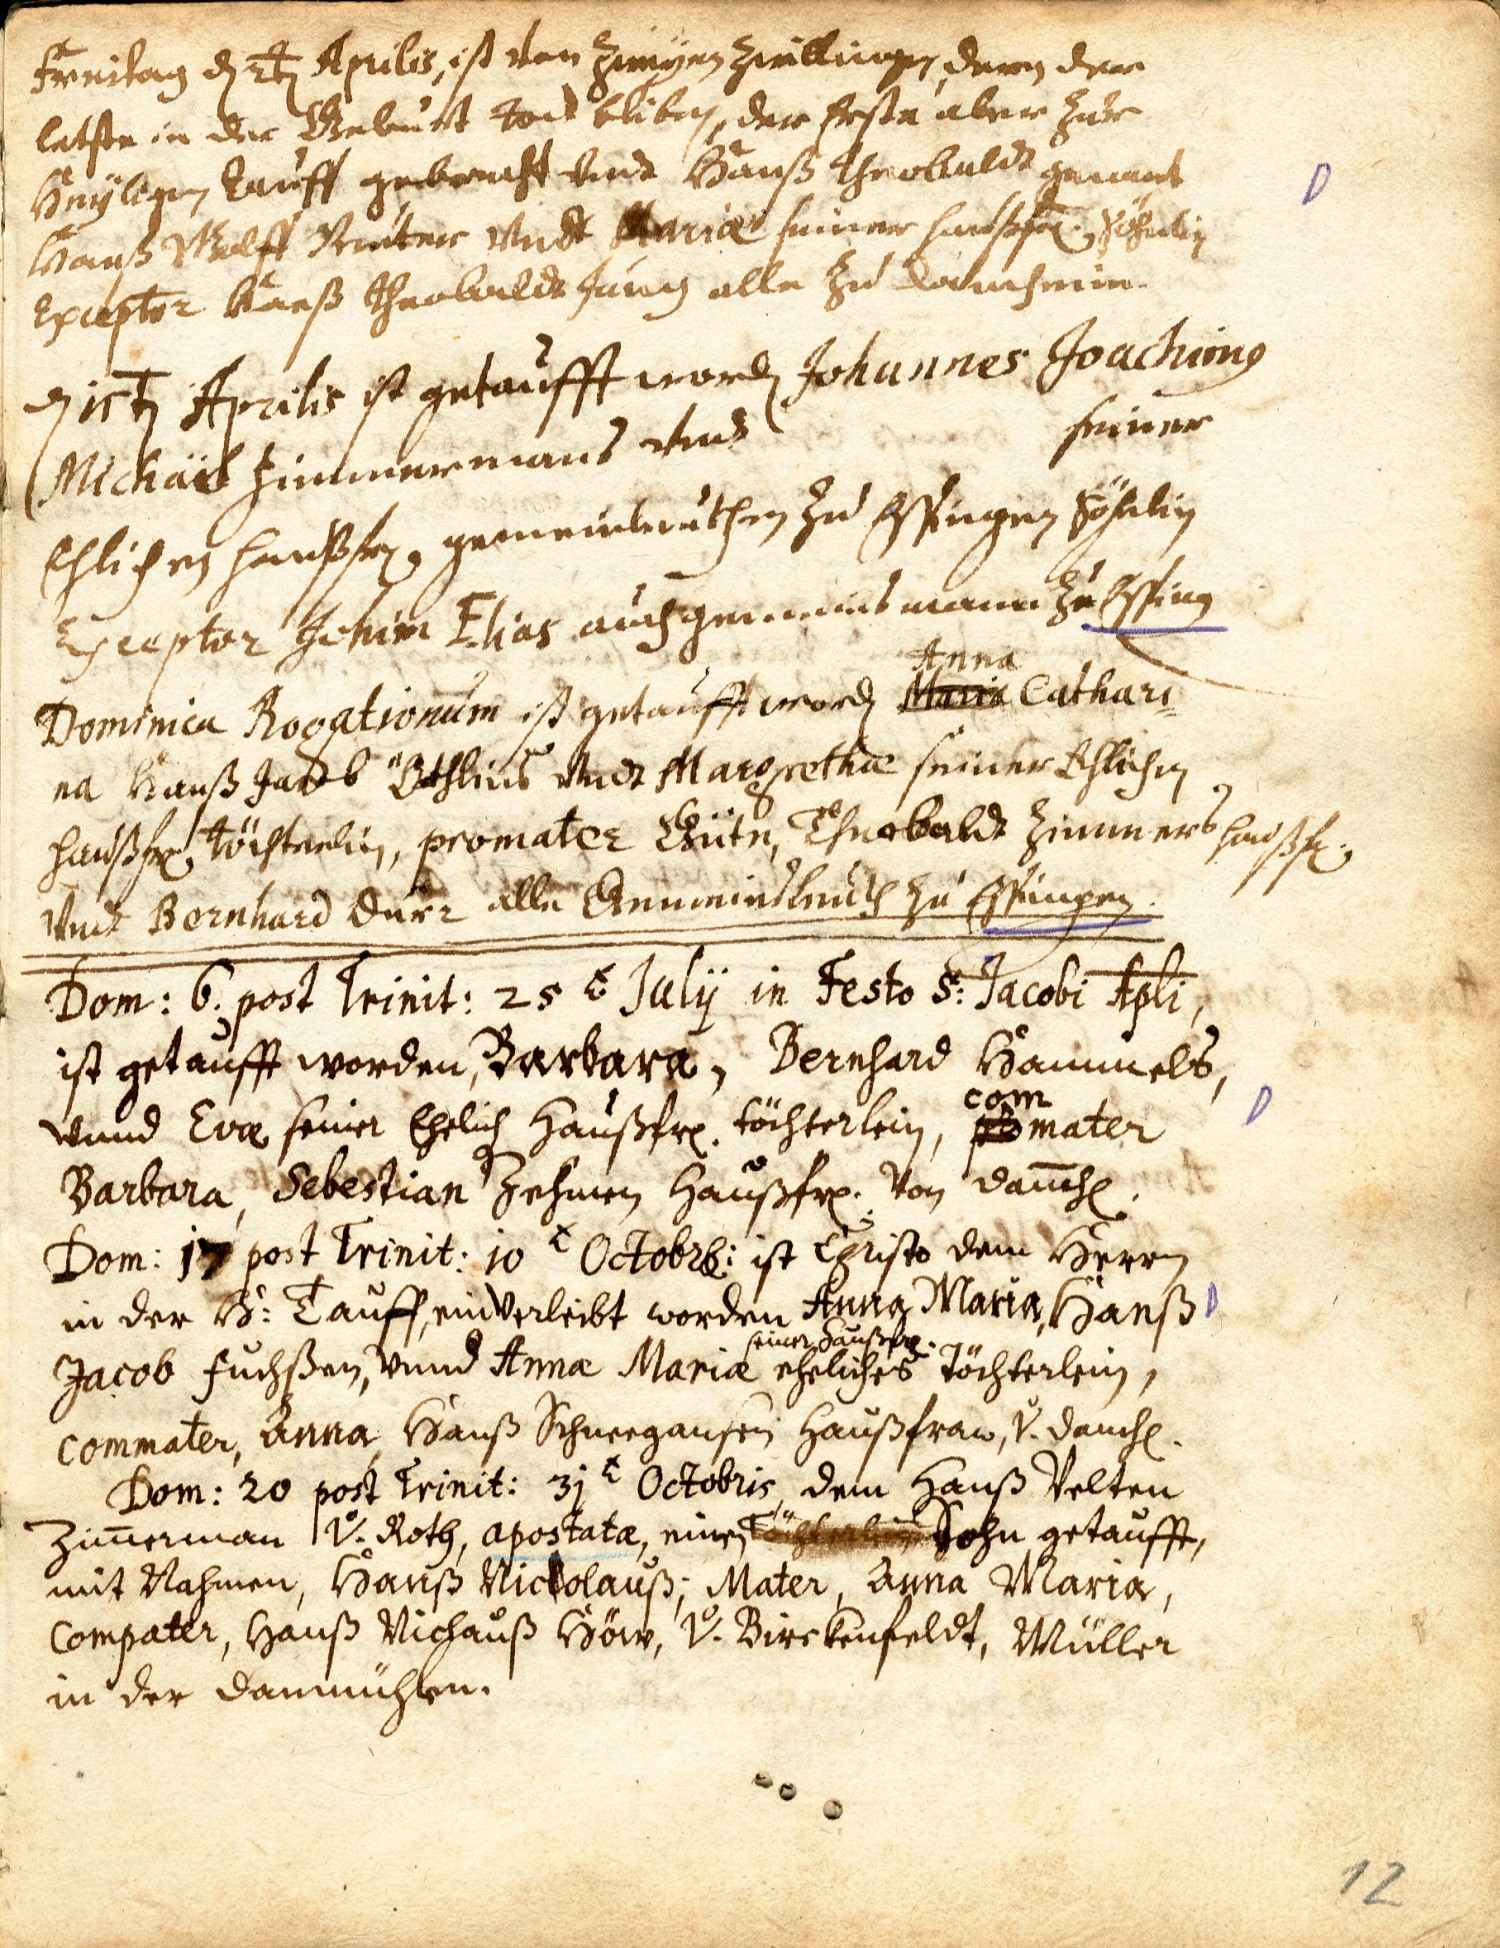 Freitag d 2t Aprilis, ist von Zweyen Zwillingen, deren der
letste in der Geburt Tod bliben, der Erste aber zur
Heyligen Tauff gebracht undt Hanß Theobaldt genant
Hanß Wolff undt Mariae seiner haußfr. Söhnlin
Exceptor Hanß Theobaldt Jung alle zu Damheim.
d 15t Aprilis ist getaufft word Johannes Joachimg
Michäel Zimmermans undt seiner
Ehlichen haußfr. gemeinsleuthen zu Essingen Söhnlin
Exceptor Jchim Elias auch gemeinsmann zu Essing
Anna
Dominica Rogationum ist getaufft word Maria Cathari=
na Hanß Jacob undt Margrethae seiner Ehlichen
haußfr. Töchterlin, promater Güte, Theobaldt Zimmers haußfr.
undt Bernhard Dürr alle Gemeindtsleuth zu Essingen.
Dom: 6. post Trinit: 25 t Julij in Festo S: Jacobi Apli,
ist getaufft worden, Barbara, Bernhard Hammels,
vnnd Evæ seiner Ehelich Haußfr. töchterlein, com
pro mater
Barbara, Sebestian Zehmen Haußfr. von damh.
Dom: 17 post Trinit: 10 t Octobrß: ist Christo dem Herrn
in der H: Tauff, einverleibt worden Anna Maria, Hanß
seiner Haußfr.
Jacob Fuchßen, vnnd Annæ Mariæ eheliches Töchterlein,
commater, Anna, Hanß Schneegansen Haußfraw, v. damh.
Dom: 20 post Trinit: 31 t Octobris, dem Hanß Velten
Zim̄erman v. Roth, apostatæ, einen Töchterlein Sohn getaufft,
mit Nahmen, Hanß Nickolauß; Mater, Anna Maria,
Compater, Hanß Nichauß Höw, v. Birckenfeldt, Müller
in der dammühlen.
12